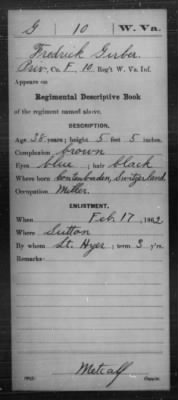 G 10 W. Va.
Fredrick Gerber
Priv, Co. F, 10 Reg't W. Va. Inf.
Appears on
Regimental Descriptive Book
of the regiment named above.
DESCRIPTION.
Age 38 years; height 5 feet 5 inches.
Complexion brown
Eyes blue; hair black
Where born Switzerland
Occupation Miller.
ENLISTMENT.
When Feb 17, 1862
Where Sutton
By whom Lt. Hyer; term 3 y'rs.
Remarks:
Metcalf
Copyist.